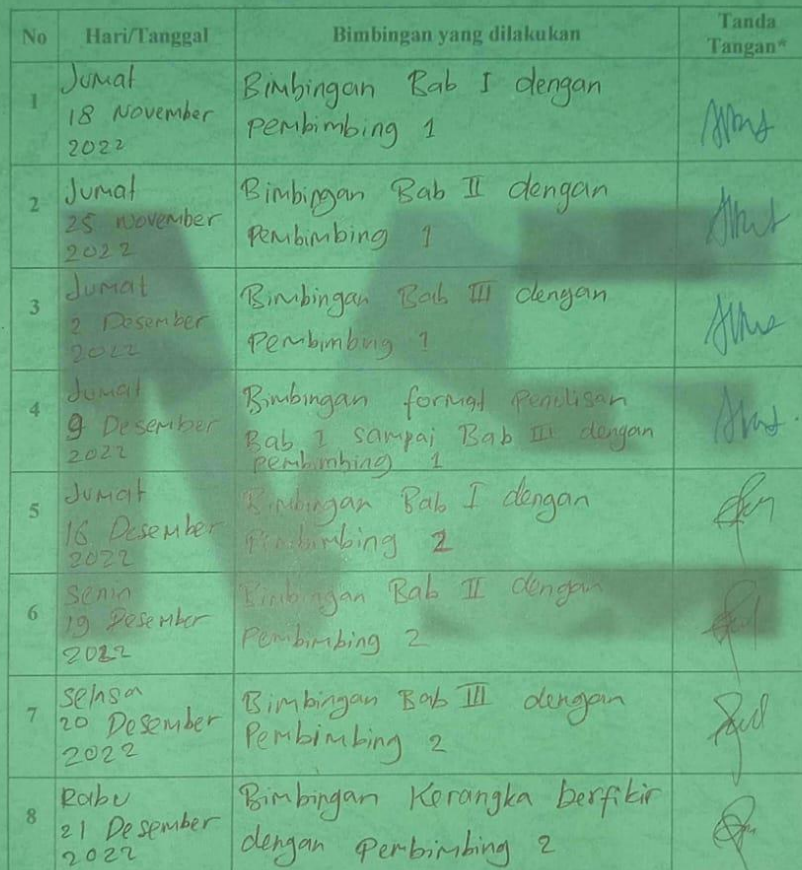 No Hari/Tanggal Bimbingan yang dilakukan Tanda Tangan*
1
Jumat
18 November
2022
Bimbingan Bab I dengan
Pembimbing 1
2
Jumat
25 November
2022
Bimbingan Bab II dengan
Pembimbing 1
3
Jumat
2 Desember
2022
Bimbingan Bab III dengan
Pembimbing 1
4
Jumat
9 Desember
2022
Bimbingan format Penulisan
Bab I sampai Bab III dengan
pembimbing 1
5
Jumat
16 Desember
2022
Bimbingan Bab I dengan
Pembimbing 2
6
Senin
19 Desember
2022
Bimbingan Bab II dengan
Pembimbing 2
7
Selasa
20 Desember
2022
Bimbingan Bab III dengan
Pembimbing 2
8
Rabu
21 Desember
2022
Bimbingan Kerangka berfikir
dengan Pembimbing 2